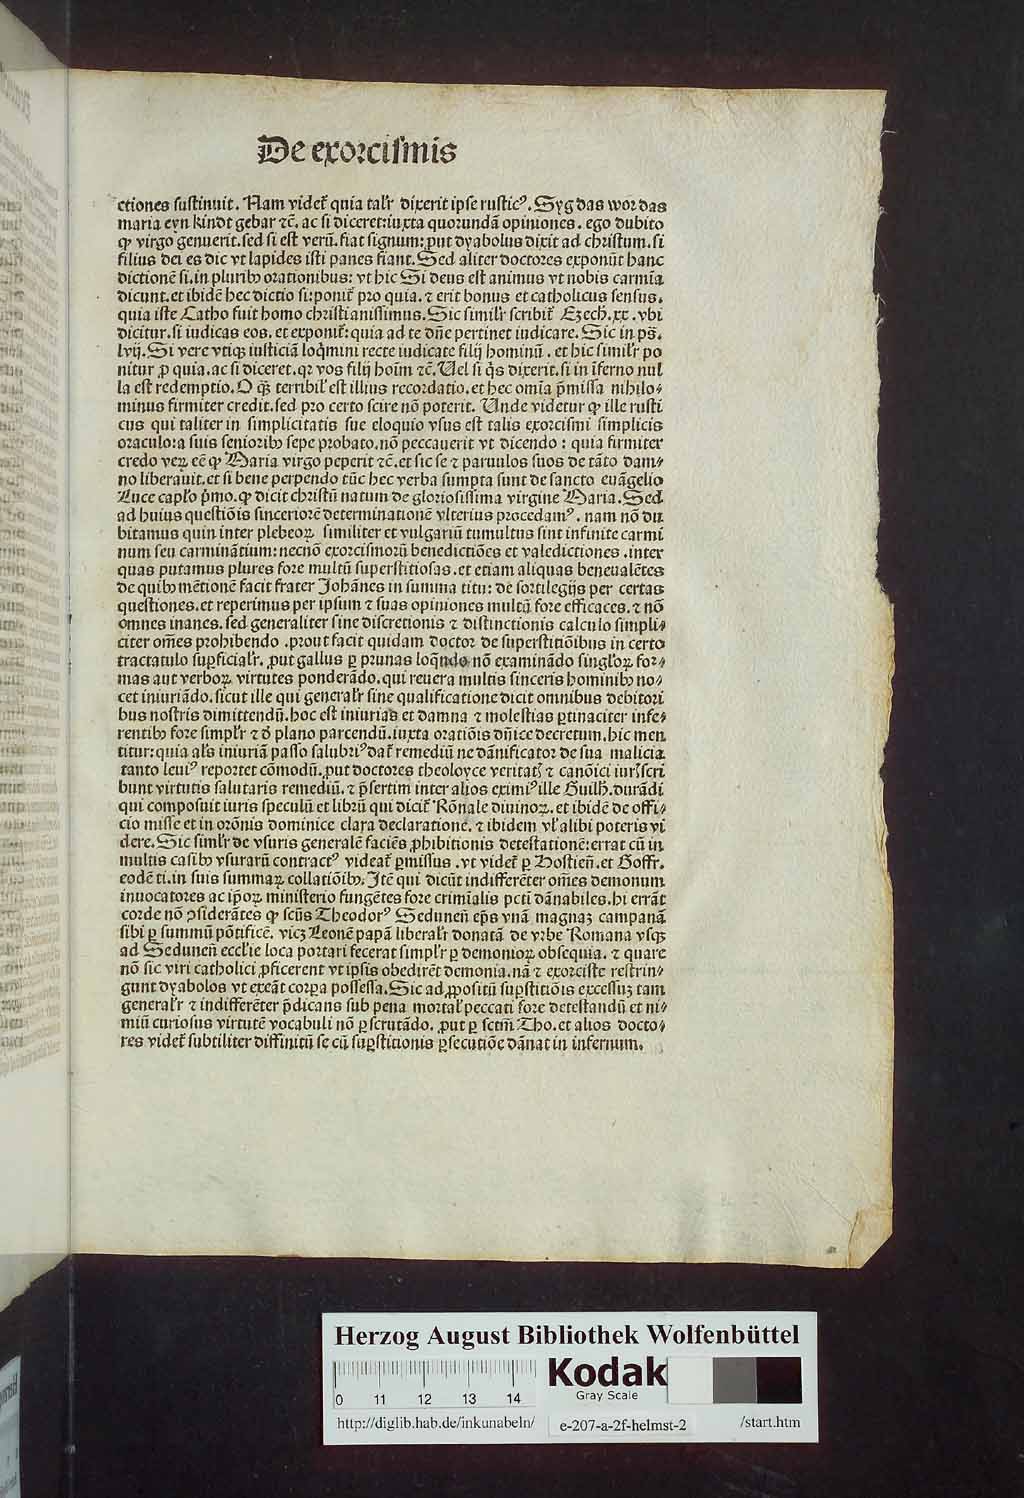 De exorcismis
ctiones sustinuit. Nam videt̃ quia tal̃r dixerit ipse rustic⁹. Syg das wor das
maria eyn kindt gebar ⁊c̃. ac si diceret: iuxta quorundã opiniones. ego dubito
ꝙ virgo genuerit. sed si est verũ. fiat signum: ꝓut dyabolus dixit ad christum. si
filius dei es dic vt lapides isti panes fiant. Sed aliter doctores exponũt hanc
dictionẽ si. in pluribꝰ orationibus: vt hic Si deus est animus vt nobis carmĩa
dicunt. et ibidẽ hec dictio si: ponit̃ pro quia. ⁊ erit bonus et catholicus sensus.
quia iste Catho fuit homo christianissimus. Sic simil̃r scribit̃ Ezech. xx. vbi
dicitur. si iudicas eos. et exponit̃: quia ad te dñe pertinet iudicare. Sic in ps̃.
lvij. Si vere vtiqꝫ iusticiã loq̃mini recte iudicate filij hominũ. et hic simil̃r po
nitur ꝓ quia. ac si diceret. qꝛ vos filij hoim ⁊c̃. Vel si q̃s dixerit. si in ĩferno nul
la est redemptio. O q̃ꝫ terribil̃ est illius recordatio. et hec omĩa p̃missa nihilo⸗
minus firmiter credit. sed pro certo scire nõ poterit. Unde videtur ꝙ ille rusti
cus qui taliter in simplicitatis sue eloquio vsus est talis exorcismi simplicis
oraculo: a suis senioribꝰ sepe probato. nõ peccauerit vt dicendo: quia firmiter
credo veꝝ eẽ ꝙ Maria virgo peperit ⁊c̃. et sic se ⁊ paruulos suos de tãto dam⸗
no liberauit. et si bene perpendo tũc hec verba sumpta sunt de sancto euãgelio
Luce capl̃o p̃mo. ꝙ dicit christũ natum de gloriosissima virgine Maria. Sed
ad huius questiõis sinceriorẽ determinationẽ vlterius procedam⁹. nam nõ du
bitamus quin inter plebeoꝝ similiter et vulgariũ tumultus sint infinite carmi
num seu carminãtium: necnõ exorcismorũ benedictiões et valedictiones. inter
quas putamus plures fore multũ superstitiosas. et etiam aliquas beneualẽtes
de quibꝰ mẽtionẽ facit frater Johãnes in summa titu: de sortilegijs per certas
questiones. et reperimus per ipsum ⁊ suas opiniones multũ fore efficaces. ⁊ nõ
omnes inanes. sed generaliter sine discretionis ⁊ distinctionis calculo simpli⸗
citer om̃es prohibendo. prout facit quidam doctor de superstitiõibus in certo
tractatulo suꝑficial̃r. ꝓut gallus ꝑ prunas loq̃ndo nõ examinãdo singl̃oꝝ for⸗
mas aut verboꝝ virtutes ponderãdo. qui reuera multis sinceris hominibꝰ no⸗
cet iniuriãdo. sicut ille qui general̃r sine qualificatione dicit omnibus debitori
bus nostris dimittendũ. hoc est iniurias et damna ⁊ molestias ꝑtinaciter infe⸗
rentibꝰ fore simpl̃r ⁊ d̃ plano parcendũ. iuxta oratiõis dñice decretum. hic men
titur: quia al̃s iniuriã passo salubri⁹ dat̃ remediũ ne dãnificator de sua malicia
tanto leui⁹ reportet cõmodũ. ꝓut doctores theoloyce veritat̃ ⁊ canõici iur̃ scri
bunt virtutis salutaris remediũ. ⁊ p̃sertim inter alios eximi⁹ ille Guilh. durãdi
qui composuit iuris speculũ et librũ qui dicit̃ Rõnale diuinoꝝ. et ibidẽ de offi⸗
cio misse et in orõnis dominice clara declaratione. ⁊ ibidem vl̃ alibi poteris vi
dere. Sic simil̃r de vsuris generalẽ faciẽs ꝓhibitionis detestationẽ: errat cũ in
multis casibꝰ vsurarũ contract⁹ videat̃ ꝑmissus. vt videt̃ ꝑ Hostieñ. et Goffr.
eodẽ ti. in suis summaꝝ collatiõibꝰ. Jtẽ qui dicũt indifferẽter om̃es demonum
inuocatores ac ip̃oꝝ ministerio fungẽtes fore crimĩalis pcti dãnabiles. hi errãt
corde nõ ꝯsiderãtes ꝙ scũs Theodor⁹ Seduneñ ep̃s vnã magnaꝫ campanã
sibi ꝑ summũ põtificẽ. vicꝫ Leonẽ papã liberal̃r donatã de vrbe Romana vsqꝫ
ad Seduneñ eccl̃ie loca portari fecerat simpl̃r ꝑ demonioꝝ obsequia. ⁊ quare
nõ sic viri catholici ꝓficerent vt ipsis obedirẽt demonia. nã ⁊ exorciste restrin⸗
gunt dyabolos vt exeãt corꝑa possessa. Sic ad ꝓpositũ suꝑstitiõis excessuꝫ tam
general̃r ⁊ indifferẽter p̃dicans sub pena mortal̃ peccati fore detestandũ et ni⸗
miũ curiosus virtutẽ vocabuli nõ ꝑscrutãdo. ꝓut ꝑ sctm̃ Tho. et alios docto⸗
res videt̃ subtiliter diffinitũ se cũ suꝑstitionis ꝑsecutiõe dãnat in infernum.
Herzog August Bibliothek Wolfenbüttel
0 11 12 13 14
Kodak
Gray Scale
http://diglib.hab.de/inkunabeln/ e-207-a-2f-helmst-2 /start.htm